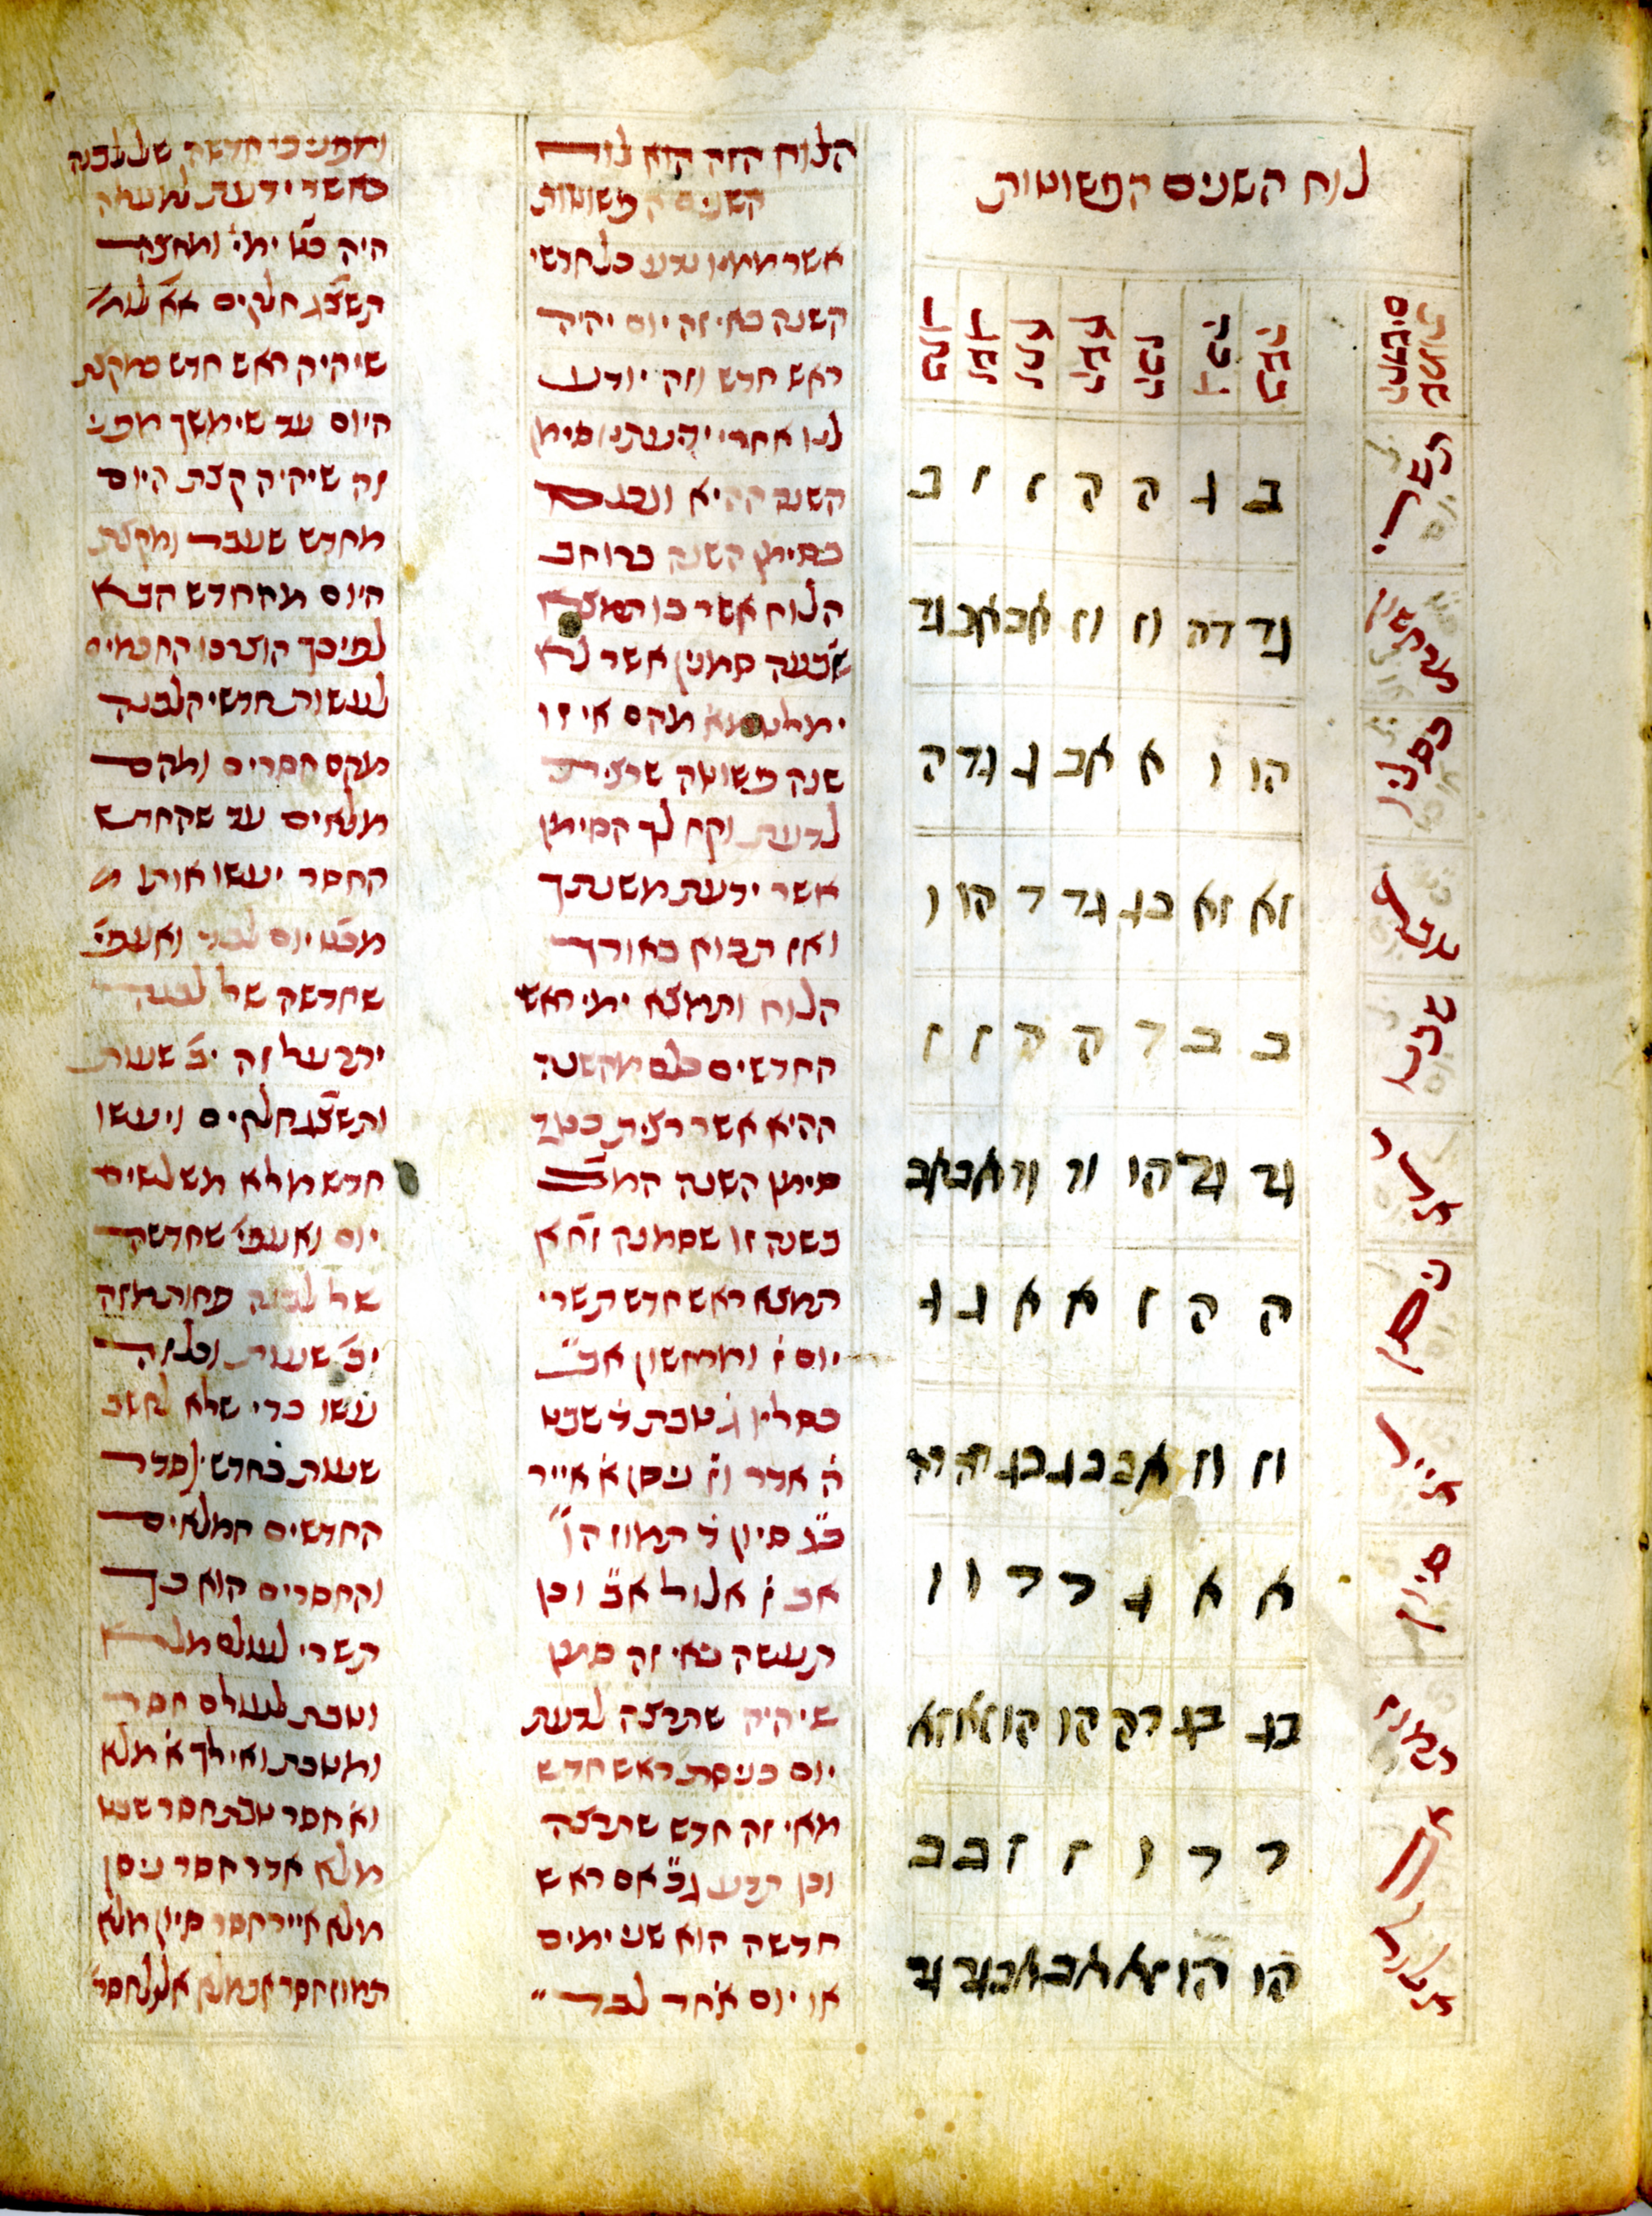 לוח השנים הפשוטות
תשרי ב ג ה ה ז ז ב
מרחשון גד דה וז וז אב אב גד
כסליו הו ו א אב ג גד ה
טבת זא זא בג גד ד הו ו
שבט ב ב ד ה ה ז ז
אדר גד גד הו וז וז אב אב
ניסן ה ה ז א א ג ג
אייר וז וז אב בג בג דה דה
סיון א א ג ד ד ו ו
תמוז בג בג דה הו הו זא זא
אב ד ד ו ז ז ב ב
אלול הו הו זא אב אב גד גד
הלוח הזה הוא לוח
השנים הפשוטות
אשר ממנו נדע כל חדשי
השנה באי זה יום יהיה
ראש חדש וזה יודע
לנו אחרי ידיעתנו סימן
השנה ההיא ונכנס
בסימן השנה ברוחב
הלוח אשר בו תמצא
שבעה סמנין אשר לא
ימלט מהם אי זו
שנה פשוטה שרצית
לדעת וקח לך הסימן
אשר ידעת משנתך
ואז תבוא באורך
הלוח ותמצא ימי ראשי
החדשים כלם מהשנה
ההיא אשר רצית כנגד
סימן השנה המ
בשנה זו שסמנה זחא
תמצא ראש חדש תשרי
יום ז ומרחשון אב
כסליו ג טבת ד שבט
ה אדר וז ניסן א אייר
בג סיון ד תמוז הו
אב ז אלול אב וכן
תעשה באי זה סימן
שיהיה שתרצה לדעת
יום כניסת ראש חדש
מאי זה חדש שתרצה
וכן תדע גב אם ראש
חדשה הוא שני ימים
או יום אחד לבד
ומפני כי חדשה שללבנה
כאשר ידעת למעלה
היה כט ימי ומחצה
תשצג חלקים אא לות
שיהיה ראש חדש מקצת
היום עד שימשך מפני
זה שיהיה קצת היום
מחדש שעבר ומקצת
היום מהחדש הבא
לפיכך הוצרכו החכמים
לעשות חדשי הלבנה
מהם חסרים ומהם
מלאים עד שהחדש
החסר יעשו אותו מ
מכט יום לבד ואעפי
שחדשה של לבנה
ירב על זה יב שעות
ותשצג חלקים ויעשו
חדש מלא משלשים
יום ואעפי שחדשה
של לבנה פחות מזה
יב שעות וכל זה
עשו כדי שלא לחשב
שעות בחדש וסדר
החדשים המלאים
והחסרים הוא כך
תשרי לעולם מלא
וטבת לעולם חסר
ומטבת ואילך א מלא
וא חסר טבת חסר שבט
מלא אדר חסר ניסן
מלא אייר חסר סיון מלא
תמוז חסר אב מלא אלול חסר